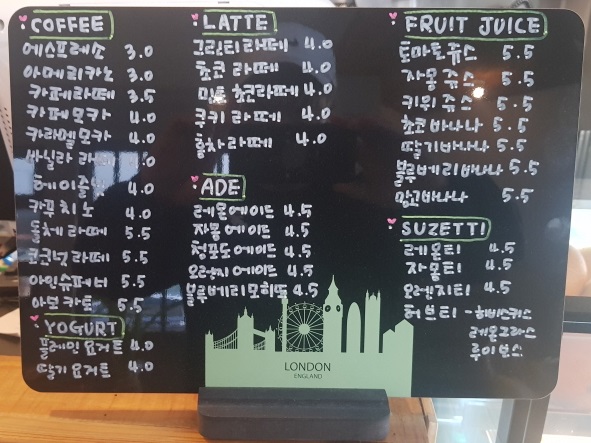 COFFEE
에스프레소 3.0
아메리카노 3.0
카페라떼 3.5
카페모카 4.0
카라멜모카 4.0
바닐라 라떼 4.0
헤이즐넛 4.0
카푸치노 4.0
돌체라떼 5.5
코코넛라떼 5.5
아인슈페너 5.5
아보카토 5.5
YOGURT
플레인 요거트 4.0
딸기 요거트 4.0
LATTE
그린티라떼 4.0
쵸코 라떼 4.0
민트 쵸코라떼 4.0
쿠키 라떼 4.0
홍차라떼 4.0
ADE
레몬에이드 4.5
자몽에이드 4.5
청포도에이드 4.5
오렌지에이드 4.5
블루베리모히또 4.5
LONDON
ENGLAND
FRUIT JUICE
토마토쥬스 5.5
자몽 쥬스 5.5
키위 쥬스 5.5
쵸코바나나 5.5
딸기바나나 5.5
블루베리바나나 5.5
망고바나나 5.5
SUZETTI
레몬티 4.5
자몽티 4.5
오렌지티 4.5
허브티 - 히비스커스
레몬그라스
루이보스